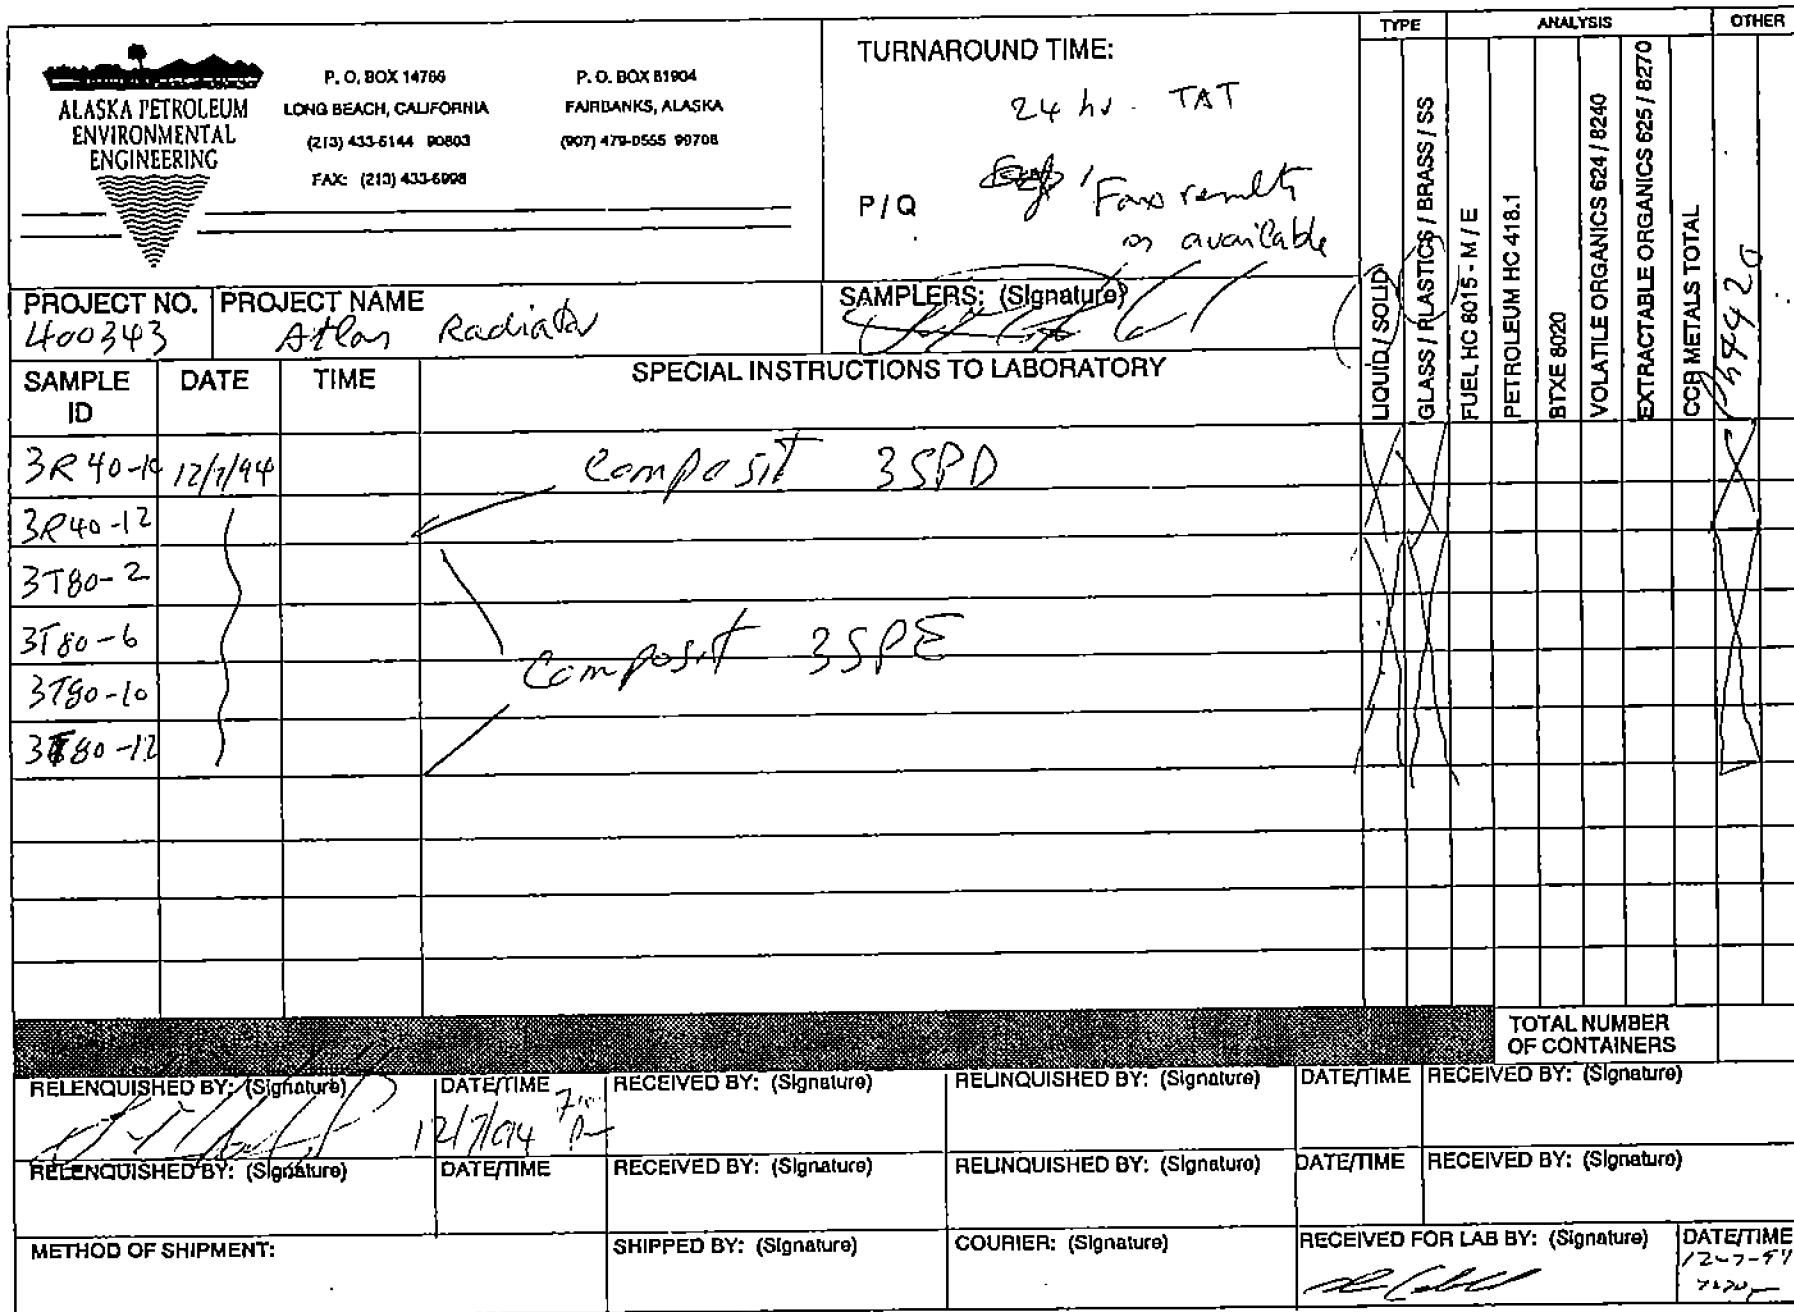 ALASKA PETROLEUM
ENVIRONMENTAL
ENGINEERING
P. O. BOX 14766
LONG BEACH, CALIFORNIA
(213) 433-5144 90803
FAX: (213) 433-6998
P. O. BOX 81904
FAIRBANKS, ALASKA
(907) 479-0555 99708
TURNAROUND TIME:
24 hr. TAT
P / Q
Fax results
as available
PROJECT NO.
400343
PROJECT NAME
Atlas Radiator
SAMPLERS: (Signature)
TYPE
ANALYSIS
OTHER
LIQUID / SOLID
GLASS / PLASTICS / BRASS / SS
FUEL HC 8015 - M / E
PETROLEUM HC 418.1
BTXE 8020
VOLATILE ORGANICS 624 / 8240
EXTRACTABLE ORGANICS 625 / 8270
CCR METALS TOTAL
7420
SAMPLE ID
DATE
TIME
SPECIAL INSTRUCTIONS TO LABORATORY
3R40-10 12/7/94 Composit 3SPD
3R40-12
3T80-2
3T80-6 Composit 3SPE
3T80-10
3T80-12
TOTAL NUMBER
OF CONTAINERS
RELENQUISHED BY: (Signature)
DATE/TIME
12/7/94
RECEIVED BY: (Signature)
RELINQUISHED BY: (Signature)
DATE/TIME
RECEIVED BY: (Signature)
RELENQUISHED BY: (Signature)
DATE/TIME
RECEIVED BY: (Signature)
RELINQUISHED BY: (Signature)
DATE/TIME
RECEIVED BY: (Signature)
METHOD OF SHIPMENT:
SHIPPED BY: (Signature)
COURIER: (Signature)
RECEIVED FOR LAB BY: (Signature)
DATE/TIME
12-7-94